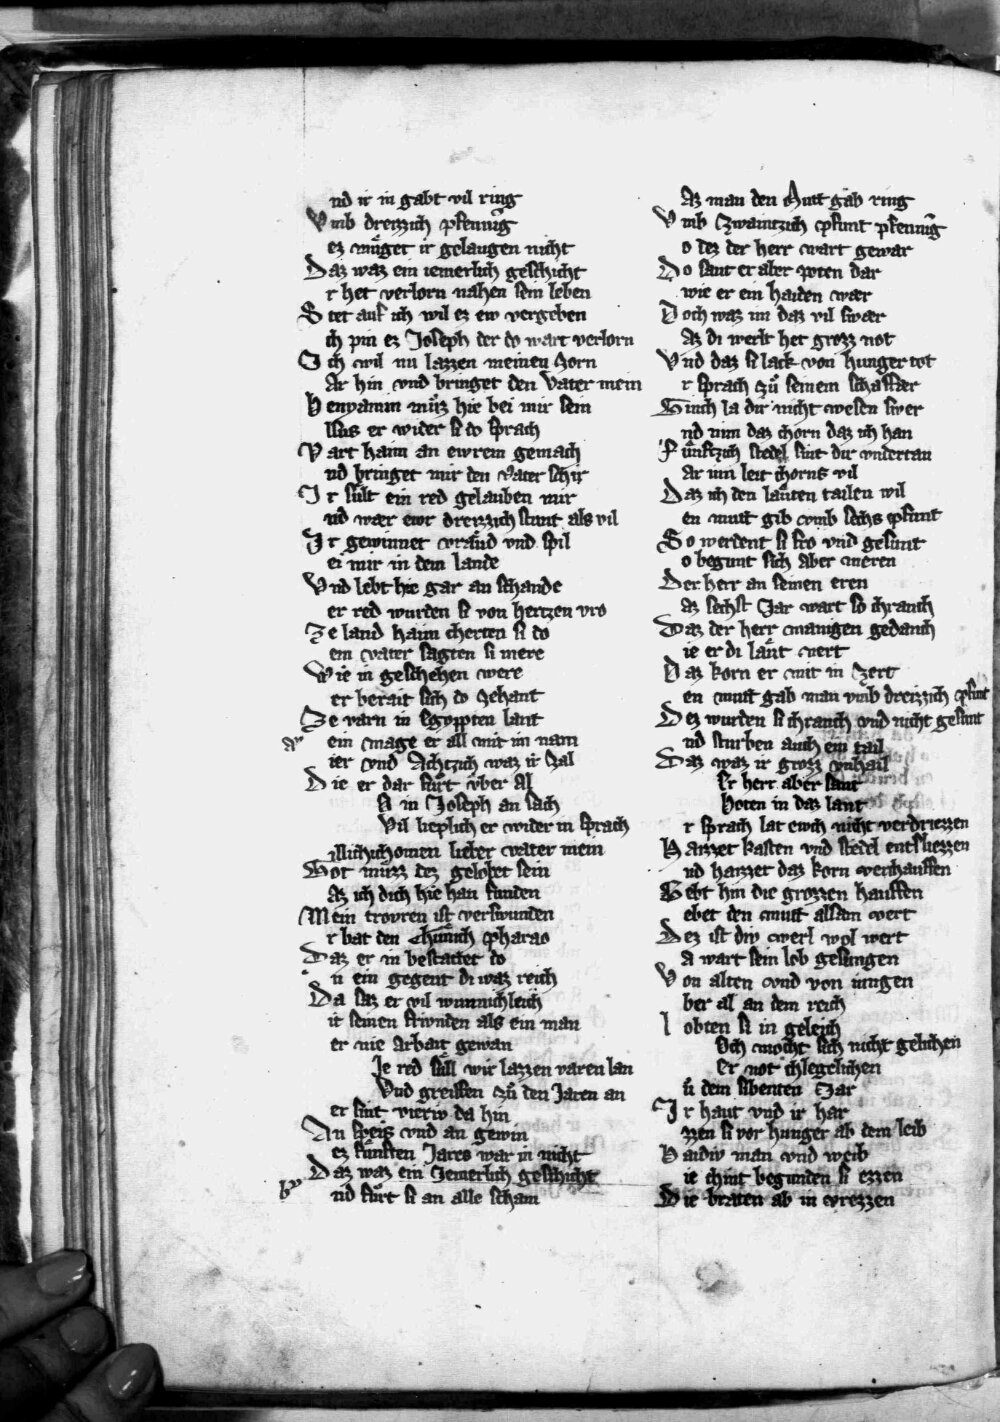 nd ir in gabt vil ring
Vmb dreizzich pfenning
ez mu̓get ir gelaugen nicht
Daz waz ein iemerlich geschicht
r het verlorn nahen sein leben
Stet auf ich wil ez ew vergeben
ch pin ez Joseph der do wart verlorn
Ich wil nu lazzen meinen zorn
Ar hin vnd bringet den Vater mein
Benyamin mu̓z hie bei mir sein
Issus er wider si do sprach
Vart haim an ewrem gemach
nd bringet mir den Vater schir
Ir su̓lt ein red gelauben mir
nd wær ewr dreizzich stunt als vil
Ir gewinnet vrau̓d vnd spil
ei mir in dem lande
Vnd lebt hie gar an schande
er red wurden si von hertzen vro
Ze land haim cherten si do
em vater sagten si mere
Wie in geschehen were
er berait sich do zehant
Ze varn in Egypten lant
a ein mage er all mit im nam
ier vnd Achtzich waz ir zal
Die er dar fu̓rt vber al
A in Joseph an sach
Vil lieplich er wider in sprach
illichchomen lieber vater mein
Got mu̓zz dez gelobet sein
az ich dich hie han funden
Mein trovren ist verswunden
r bat den Chu̓nich pharao
Daz er in bestattet do
n ein gegent di waz reich
Da saz er vil wunnichleich
it seinen frivnden als ein man
er nie Arbait gewan
Ie red su̓ll wir lazzen varen lan
Vnd greiffen zu̓ den Jaren an
er sint vierw da hin
An speis vnd an gewin
ez fu̓nften Jares war in nicht
Daz waz ein Jemerlich geschicht
b nd fu̓rt si an alle scham
Az man den Mutt gab ring
Vmb Zwaintzich pfunt pfenning
o dez der herr wart gewar
Do sant er aber poten dar
wie er ein haiden wær
Doch waz im daz vil swær
Az di werlt het grozz not
Vnd daz si lack von hunger tot
r sprach zu̓ seinem schaffær
Ginch la dir nicht wesen swer
nd nim daz chorn daz ich han
Fu̓nftzich stedel sint dir vndertan
Ar inn leit chorns vil
Daz ich den lau̓ten tailen wil
en mutt gib vmb sechs pfunt
So werdent si fro vnd gesunt
o begunt sich aber meren
Der herr an seinen eren
az sechst Jar wart so chranch
Daz der herr manigen gedanch
ie er di lau̓t nert
Daz korn er mit in zert
en mutt gab man vmb dreizzich pfunt
Dez wurden si chranch vnd nicht gesunt
nd sturben auch ein tail
Daz waz ir grozz vnhail
Er herr aber sant
Boten in daz lant
r sprach lat ewch nicht verdriezzen
Haizzet kasten vnd stedel entsliezzen
nd haizzet daz korn verchauffen
Gebt hin die grozzen hauffen
ebet den mutt alsam wert
Dez ist div werl wol wert
a wart sein lob gesungen
Von alten vnd von iungen
ber al an dem reich
Lobten si in geleich
Och mocht sich nicht gelichen
Er not chlegelichen
u̓ dem sibenten Jar
Ir haut vnd ir har
zzen si vor hunger ab dem leib
Baidiv man vnd weib
ie chint begunden si ezzen
Die braten ab in vrezzen